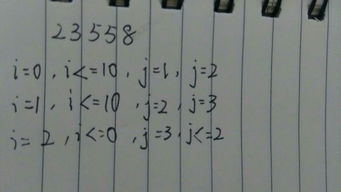 23558
i=0, i<=10, j=1, j=2
i=1, i<=10, j=2, j=3
i=2, i<=0, j=3, j<=2